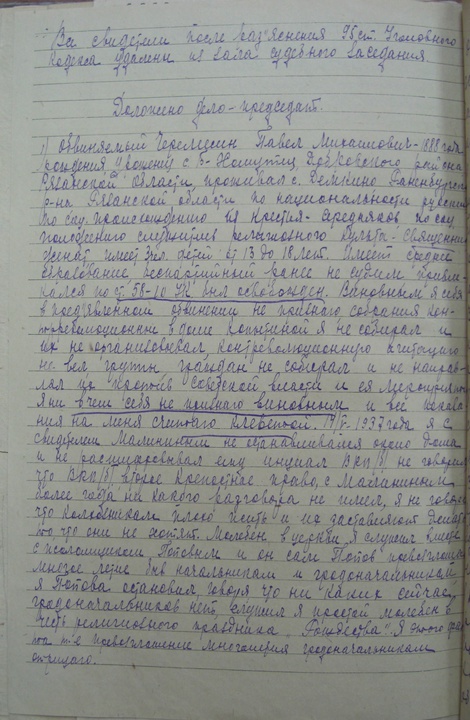 Все свидетели после разъяснения 95 ст. Уголовного
Кодекса удалены из зала судебного заседания.
Доложено дело - председат.
1) Обвиняемый Черемисин Павел Михайлович - 1888 года
рождения, уроженец с. Б-
района
Рязанской области, проживал с. Демкино
р-на Рязанской области по национальности русский
по соц. происхождению из крестья-середняков по соц.
положению служитель религиозного культа - священник
женат имеет детей от 13 до 18 лет. Имеет среднее
образование беспартийный ранее не судим привле-
кался по ст. 58-10 УК был освобожден. Виновным я себя
в предъявленном обвинении не признаю собрания кон-
трреволюционные в доме я не собирал и
их не организовывал, контрреволюционную агитацию
не вел группы граждан не собирал и не направ-
лял их против Советской власти и ея мероприятий
я ни в чем себя не признаю виновным и все показа-
ния на меня считаю клеветой. 1937 года я с
свидетелем Малининым не останавливался около дома
и не расшифровывал ему инициал ВКП/б/ не говорил
что ВКП/б/ второе крепостное право, с Малининым
более года ни какого разговора не имел, я не говорил
что колхозникам плохо жить и их заставляют делать
то что они не хотят. Молебен в церкви я служил вместе
с псаломщиком Поповым и он сам Попов провозглашал
многое летие был начальникам и градоначальником
я Попова остановил говоря что ни каких сейчас
градоначальников нет служил я простой молебен в
честь религиозного праздника "Рождества". Я этого фак-
та т-е провозглашение многолетия градоначальникам
отрицаю.